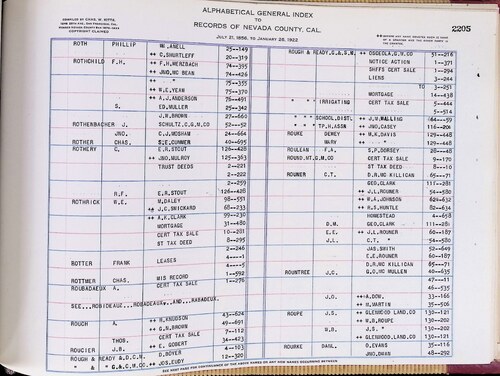 ALPHABETICAL GENERAL INDEX
TO
RECORDS OF NEVADA COUNTY, CAL.
JULY 21, 1856, TO JANUARY 25, 1922
2205
COMPILED BY CHAS. E. KITTS
COPYRIGHT CLAIMED
ROTH PHILLIP WM.ANELL 25—149
++ C.SHURTLEFF 20—319
ROTHCHILD F.H. ++ F.H.MERZBACH 74—355
++ JNO.MC BEAN 74—426
++ " " 75—355
++ W.E.YEAN 75—370
++ A.J.ANDERSON 76—491
S. ED.MULLER 25—342
J.W.BROWN 27—660
ROTHERBACHER J. SCHULTZ,C.G,M,CO 52—52
JNO. C.J.MOSHAM 24—664
ROTHER CHAS. S.E.CUMMER 40—695
ROTHERY G. E.R.STOUT 120—428
++ JNO.MULROY 125—363
TRUST DEEDS 2—221
2—221
2—259
R.F. E.R.STOUT 126—428
ROTHRICK W.E. M.DALEY 98—551
++ J.C.SWICKARD 68—233
++ A.R.CLARK 99—230
MORTGAGE 31—480
CERT TAX SALE 10—281
ST TAX DEED 8—295
2—246
ROTTER FRANK LEASES 4——1
4——5
ROTTMER CHAS. MIS RECORD 1—592
ROUBADEAUX A. CERT TAX SALE 1—276
SEE,,,ROBIDEAUX,,,ROBADEAUX,,,AND,,,RABADEUX.
ROUCH A. ++ H.KNUDSON 43—624
++ G.N.BROWN 49—691
CERT TAX SALE 7—112
THOS. 34—423
ROUCIER J.B. ++ E. GOBERT 4—103
ROUGH & READY A.D.C.N. D.BOYER 12—320
" " & " G.&C.M.CO ++ JOS.EUDY
ROUGH & READY,G.&S.M. ++ OSCEOLA,G.M.CO 51—216
NOTICE ACTION 1—371
SHFFS CERT SALE 1—294
LIENS 3—244
TO 3—251
MORTGAGE 14—438
" " " IRRIGATING CERT TAX SALE 5—444
5—514
" " " SCHOOL,DIST. ++ J.W.WALLING 64—59
" " " TP,H,ASSN ++ JNO.CASEY 116—201
ROUKE DEWEY ++ M.K.DAVIS 129—448
MARY ++ " " 129—448
ROULEAN F.A. S.P.DORSEY 20—48
ROUND,MT,G.M.CO CERT TAX SALE 9—170
ST TAX DEED 8—10
ROUNER C.T. D.R.MC KILLICAN 65—71
GEO.CLARK 111—281
++ J.L.ROUNER 54—588
++ W.A.JOHNSON 62—632
++ W.S.HUNTLE 82—634
HOMESTEAD 4—658
D.M. GEO.CLARK 111—281
E.E. ++ J.L.ROUNER 60—187
J.L. C.T. " 54—580
JAS.SMITH 52—649
E.E.ROUNER 60—187
D.R.MC KILLICAN 65—71
ROUNTREE J.C. G.O.MC MULLEN 40—635
47—11
46—535
J.O. ++A.DOW. 33—166
++ W.MARTIN 35—506
ROUPE J.S. ++ GLENWOOD LAND CO 130—121
++ W.B.ROUPE 130—202
N.B. J.S. " 130—202
++ GLENWOOD LAND CO 130—121
ROURKE DAUL. D.EVANS 35—116
JNO.DWAN 48—292